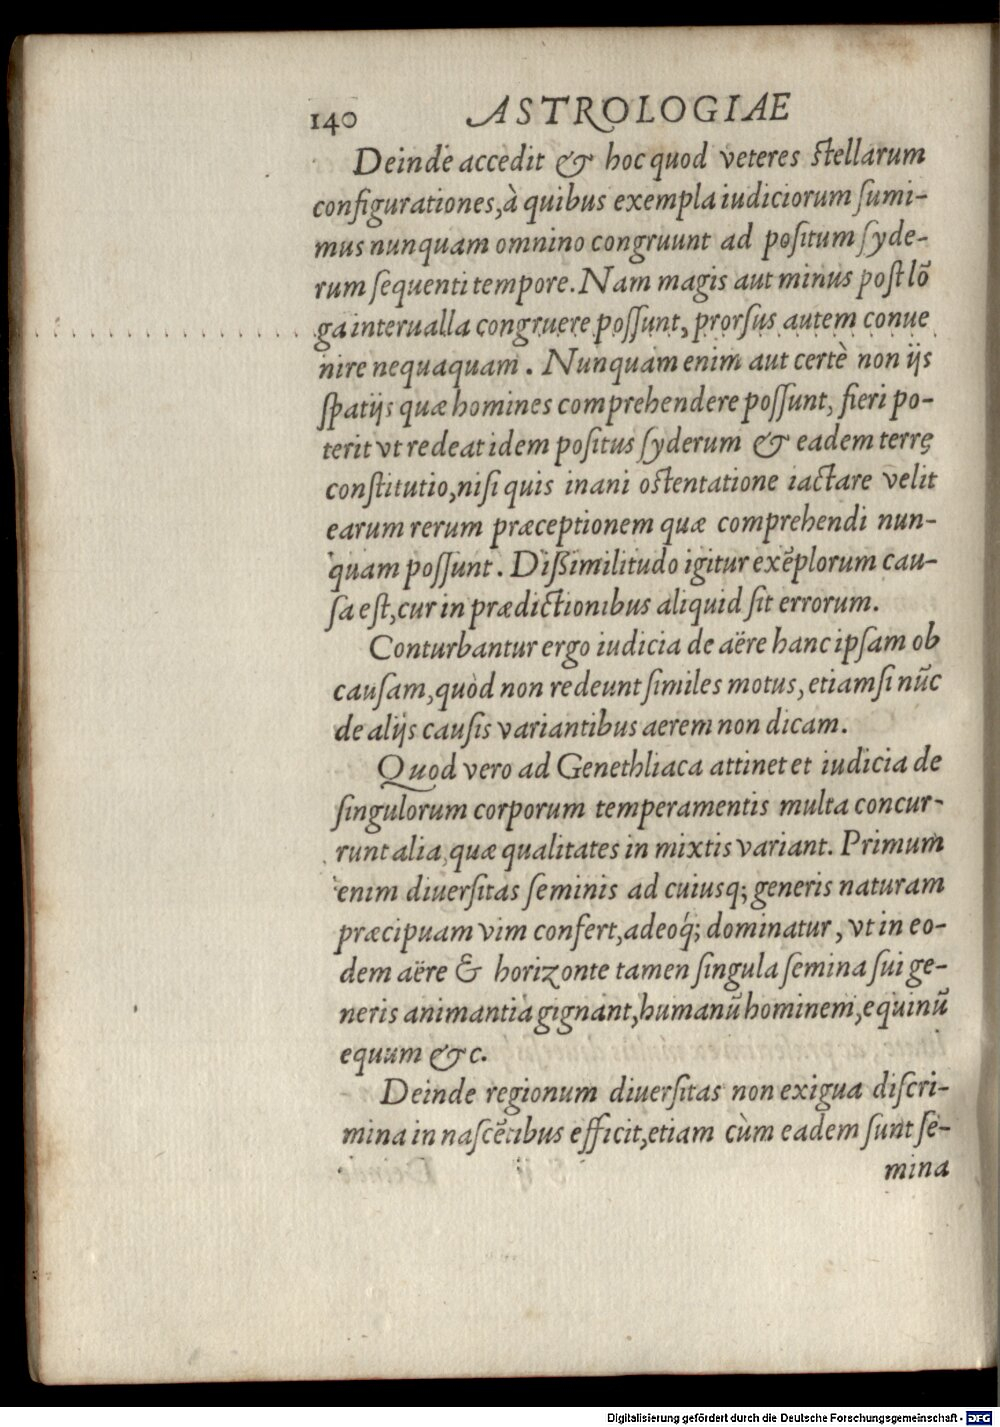 140 ASTROLOGIAE
Deinde accedit & hoc quod veteres stellarum
configurationes, à quibus exempla iudiciorum ſumi-
mus nunquam omnino congruunt ad poſitum ſyde-
rum ſequenti tempore. Nam magis aut minus poſt lõ
ga interualla congruere poſſunt, prorſus autem conue
nire nequaquam. Nunquam enim aut certè non ijs
ſpatijs quæ homines comprehendere poſſunt, fieri po-
terit vt redeat idem poſitus ſyderum & eadem terrę
conſtitutio, niſi quis inani oſtentatione iactare velit
earum rerum præceptionem quæ comprehendi nun-
quam poſſunt. Diſsimilitudo igitur exẽplorum cau-
ſa eſt, cur in prædictionibus aliquid ſit errorum.
Conturbantur ergo iudicia de aëre hanc ipſam ob
cauſam, quòd non redeunt ſimiles motus, etiamſi nũc
de alijs cauſis variantibus aerem non dicam.
Quod vero ad Genethliaca attinet et iudicia de
ſingulorum corporum temperamentis multa concur-
runt alia, quæ qualitates in mixtis variant. Primum
enim diuerſitas ſeminis ad cuiusq; generis naturam
præcipuam vim confert, adeoq́; dominatur, vt in eo-
dem aëre & horizonte tamen ſingula ſemina ſui ge-
neris animantia gignant, humanũ hominem, equinũ
equum &c.
Deinde regionum diuerſitas non exigua diſcri-
mina in naſcẽtibus efficit, etiam cùm eadem ſunt ſe-
mina
Digitalisierung gefördert durch die Deutsche Forschungsgemeinschaft - DFG